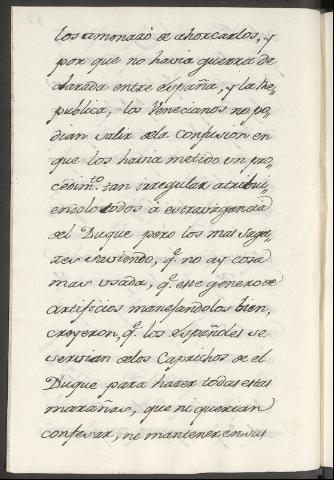 los amenazó de ahorcarlos, y
por que no havia guerra de
clarada entre españa, y la Re,,
publica, los Venecianos no po,,
dian salir dela confusion en
que los havia metido un pro,,
cedim.to tan irregular atribui,,
endolo todos á extravagancia
del Duque pero los mas Saga,,
zes saviendo, q.e no ay cosa
mas usada, q.e este genero de
artificios manejandolos bien,
creyeron, q.e los españoles se
servian delos Caprichos de el
Duque para hazer todas estas
marañas, que ni querian
confesar, ni mantener en sus